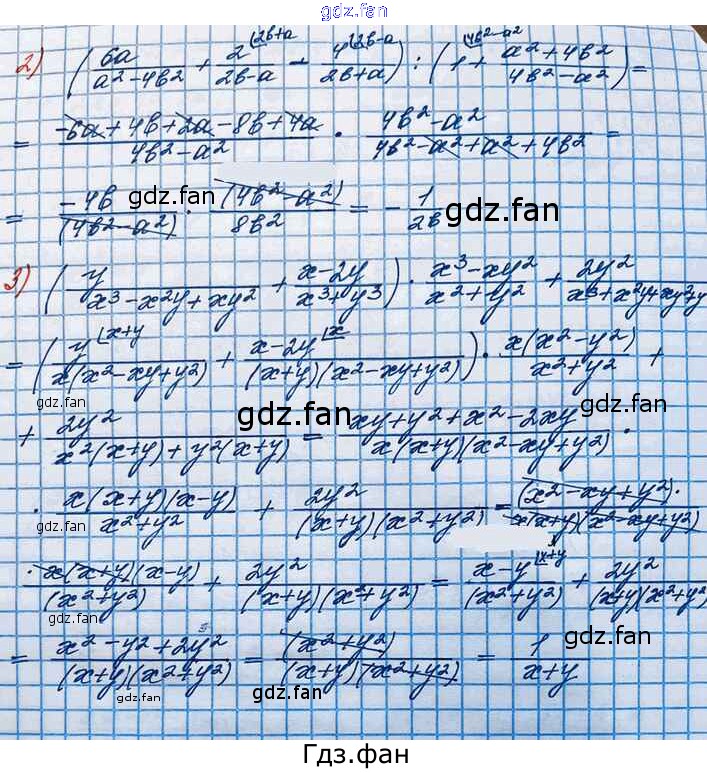 gdz.fan
2) (6a/(a² - 4b²) + 2^(2b+a)/(2b-a) - 4^(2b-a)/(2b+a)) : (1^(4b²-a²) + (a² + 4b²)/(4b² - a²)) =
= (-6a + 4b + 2a - 8b + 4a)/(4b² - a²) · (4b² - a²)/(4b² - a² + a² + 4b²) =
= -4b/(4b² - a²) · (4b² - a²)/8b² = - 1/2b
gdz.fan
gdz.fan
3) (y/(x³ - x²y + xy²) + (x - 2y)/(x³ + y³)) · (x³ - xy²)/(x² + y²) + 2y²/(x³ + x²y + xy² + y
= (y^(x+y)/(x(x² - xy + y²)) + (x - 2y)^(x)/((x+y)(x² - xy + y²))) · x(x² - y²)/(x² + y²) +
gdz.fan
gdz.fan
gdz.fan
+ 2y²/(x²(x+y) + y²(x+y)) = (xy + y² + x² - 2xy)/(x(x+y)(x² - xy + y²)) ·
· x(x+y)(x-y)/(x² + y²) + 2y²/((x+y)(x² + y²)) = (x² - xy + y²)/(x(x+y)(x² - xy + y²)) ·
gdz.fan
gdz.fan
· x(x+y)(x-y)/(x² + y²) + 2y²/((x+y)(x² + y²)) = (x - y)^(x+y)/(x² + y²) + 2y²/((x+y)(x² + y²)
= (x² - y² + 2y²)/((x+y)(x² + y²)) = (x² + y²)/((x+y)(x² + y²)) = 1/(x+y)
gdz.fan
gdz.fan
gdz.fan
Гдз.фан